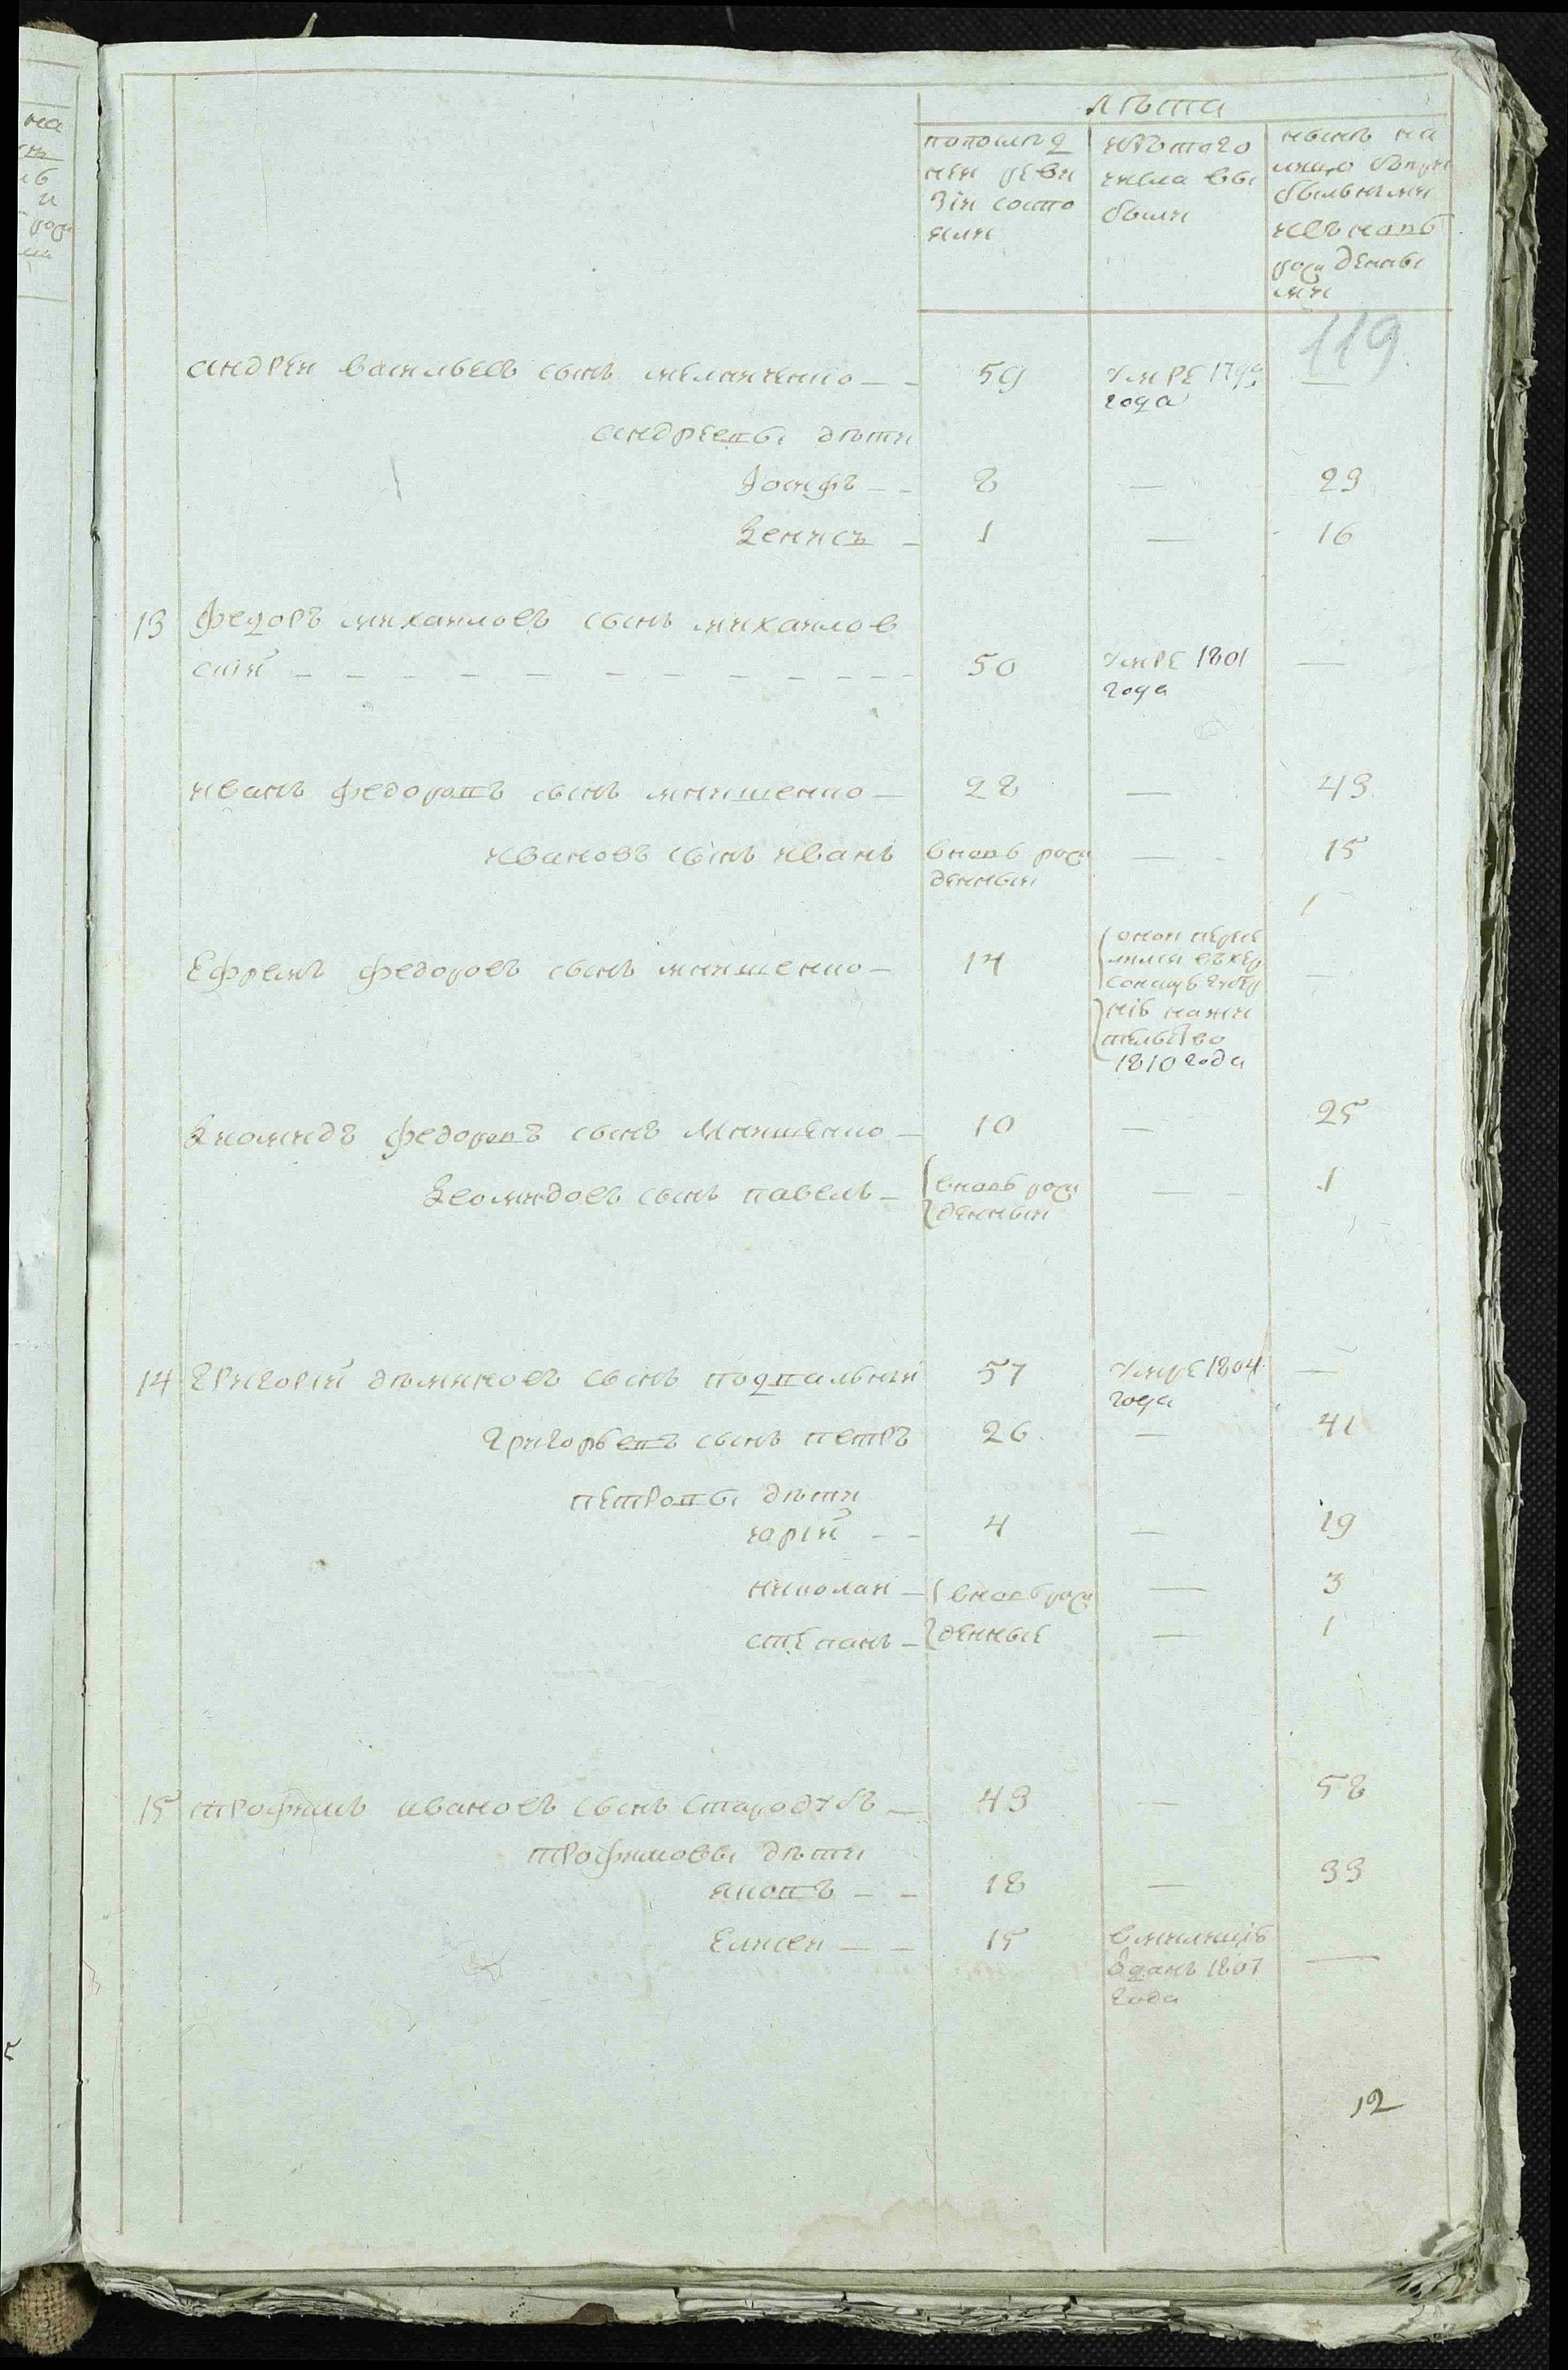 лѣта
попослѣд
ней реви
зіи состо
яли
изътого
числа вы
были
нынѣ на
лицо съпри
былыми
ивъновь
рожденны
ми
119
андрей васильевъ сынъ мелниченко 59 умре 1799
года
андреевы дѣти
Іосифъ 8 — 23
Денисъ 1 — 16
13 федоръ михаиловъ сынъ михаилов
скій 50 умре 1801 —
года
иванъ федоровъ сынъ мнишенко 28 — 43
ивановъ сынъ иванъ вновь рож — 15
денный
1
Ефремъ федоровъ сынъ мнишенко 14 оной пересе —
лился въхер
сонскую губер
нію нажи
тельство
1810 года
Диомидъ федоровъ сынъ Мнишенко 10 — 25
Деомидовъ сынъ павелъ вновь рож — 1
денный
14 григорій дѣмяновъ сынъ подпальній 57 умре 1804 —
года
григорьевъ сынъ петръ 26 — 41
петровы дѣти
юрій 4 — 19
николай вновь рож — 3
степанъ денные — 1
15 трофимъ ивановъ сынъ стародубъ 43 — 58
трофимовы дѣти
яковъ 18 — 33
Елисей 15 вмилицію —
отданъ 1807
года
12